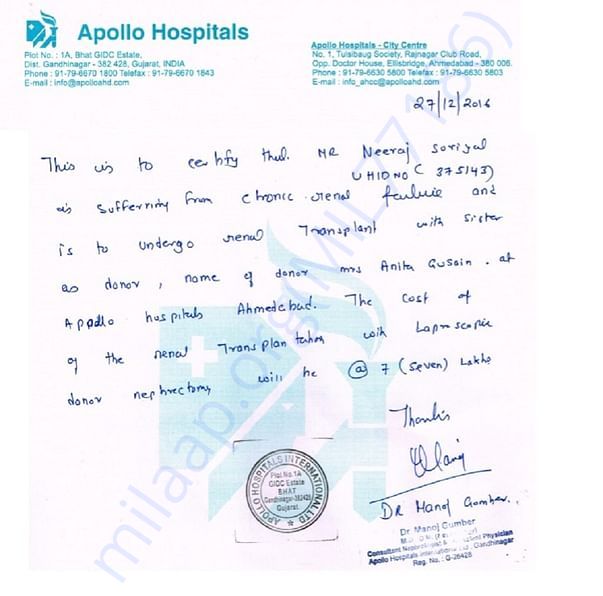 Apollo Hospitals
Plot No. : 1A, Bhat GIDC Estate,
Dist. Gandhinagar - 382 428, Gujarat, INDIA
Phone : 91-79-6670 1800 Telefax : 91-79-6670 1843
E-mail : info@apolloahd.com
Apollo Hospitals - City Centre
No. 1, Tulsibaug Society, Rajnagar Club Road,
Opp. Doctor House, Ellisbridge, Ahmedabad - 380 006.
Phone : 91-79-6630 5800 Telefax : 91-79-6630 5803
E-mail : info_ahcc@apolloahd.com
27/12/2016
This is to certify that. MR Neeraj Soriyal
UHID NO ( 375143)
is suffering from chronic renal failure and
is to undergo renal Transplant with sister
as donor, name of donor mrs Anita Gusain . at
Apollo hospitals Ahmedabad. The cost of
of the renal Transplantation with Laproscopic
donor nephrectomy will be @ 7 (Seven) Lakhs
Thanks
DR Manoj Gumber.
Dr Manoj Gumber
Consultant Nephrologist & Physician
Apollo Hospitals International Ltd., Gandhinagar
Reg. No. : G-26428
APOLLO HOSPITALS INTERNATIONAL LTD
Plot No.1A
GIDC Estate
BHAT
Gandhinagar-382428
Gujarat.
milaap.org(MIL77186)